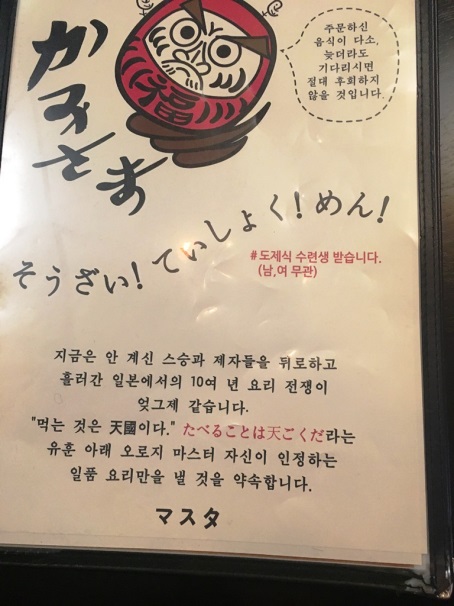 かみさま
福
주문하신
음식이 다소,
늦더라도
기다리시면
절대 후회하지
않을 것입니다.
そうざい! ていしょく! めん!
#도제식 수련생 받습니다.
(남,여 무관)
지금은 안 계신 스승과 제자들을 뒤로하고
흘러간 일본에서의 10여 년 요리 전쟁이
엊그제 같습니다.
"먹는 것은 天國이다." たべることは天ごくだ라는
유훈 아래 오로지 마스터 자신이 인정하는
일품 요리만을 낼 것을 약속합니다.
マスタ